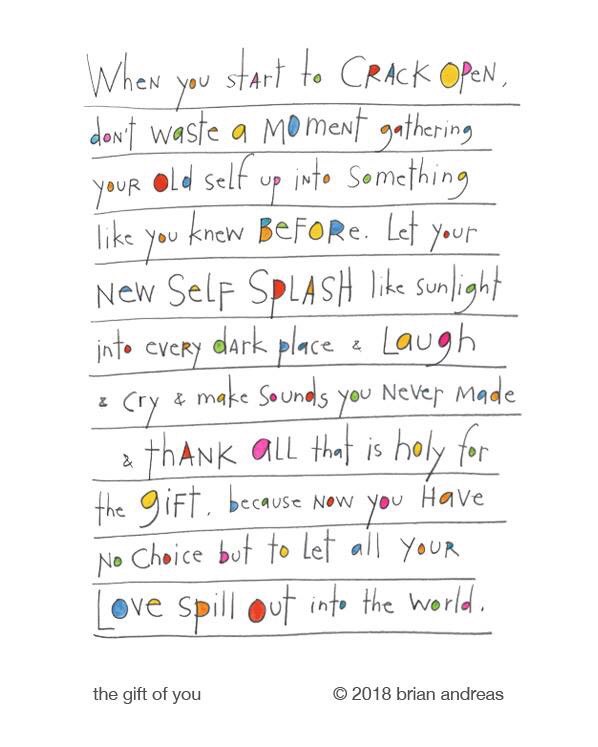 When you start to CRACK OPEN,
don't waste a MOMENT gathering
your old self up into something
like you knew BEFORE. Let your
new self SPLASH like sunlight
into every dark place & Laugh
& cry & make sounds you never made
& thANK all that is holy for
the gift. because now you Have
No choice but to let all your
Love spill out into the world.
the gift of you
© 2018 brian andreas